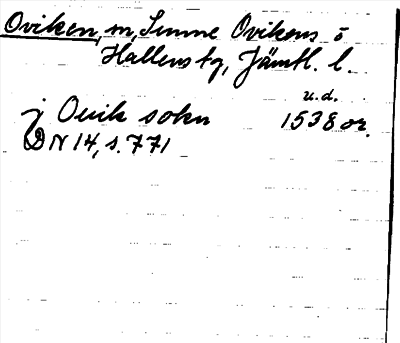 Oviken, m, Sunne Ovikens o
Hallens tg, Jämtl. l.
u.d.
j Ouik sokn 1538 or.
DN 14, s. 771